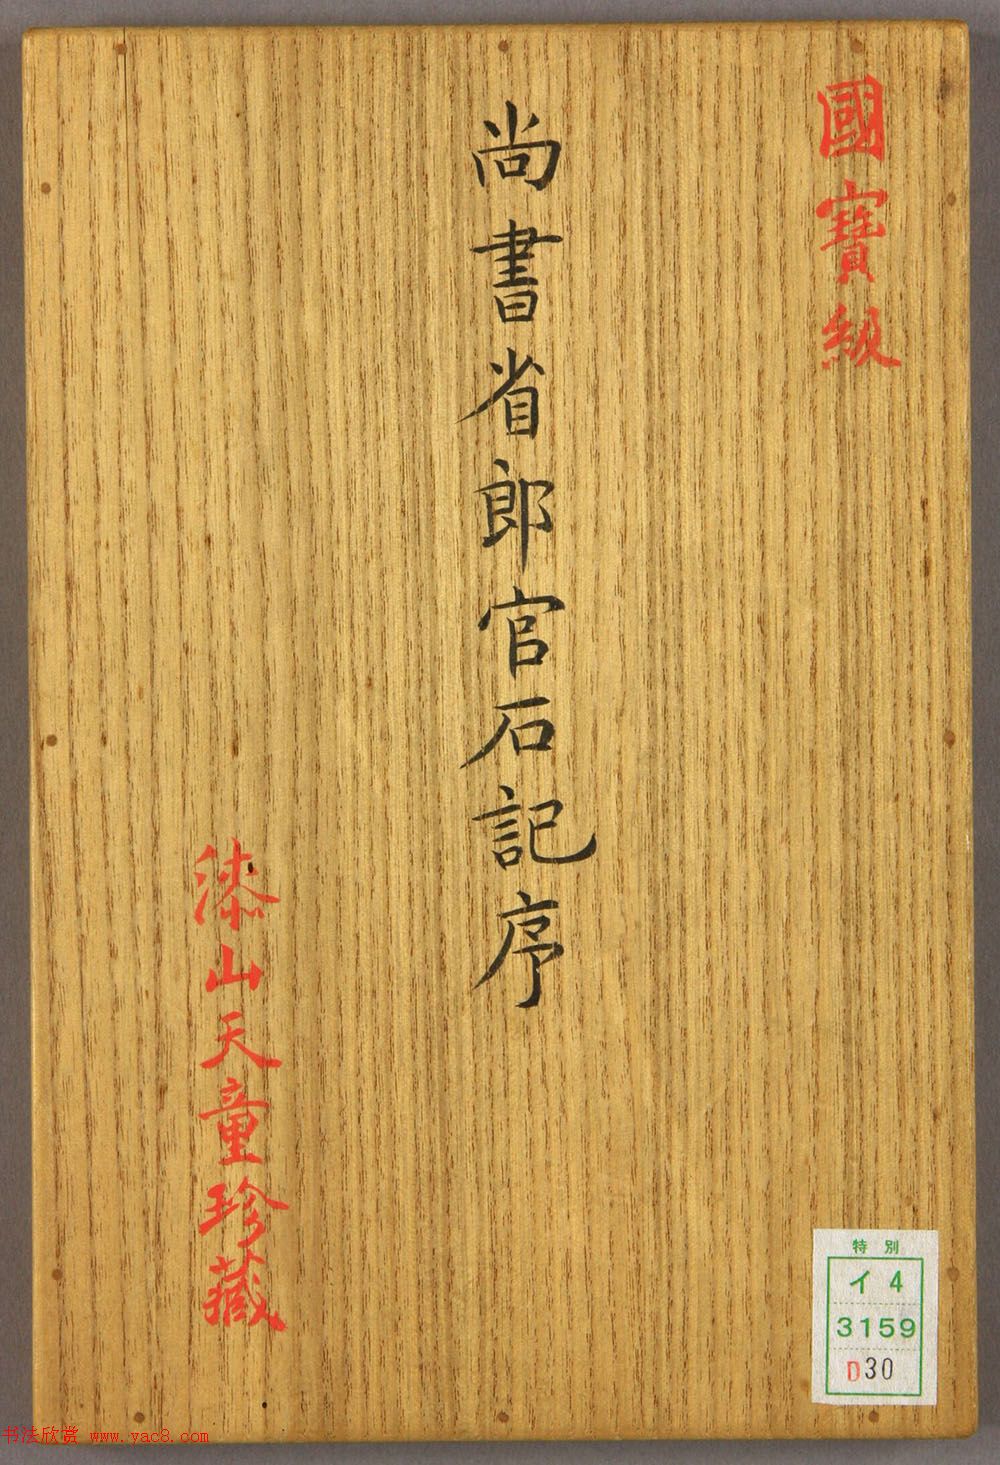 國寶級
尚書省郎官石記序
漆山天童珍藏
特別
イ4
3159
D30
书法欣赏 www.yac8.com